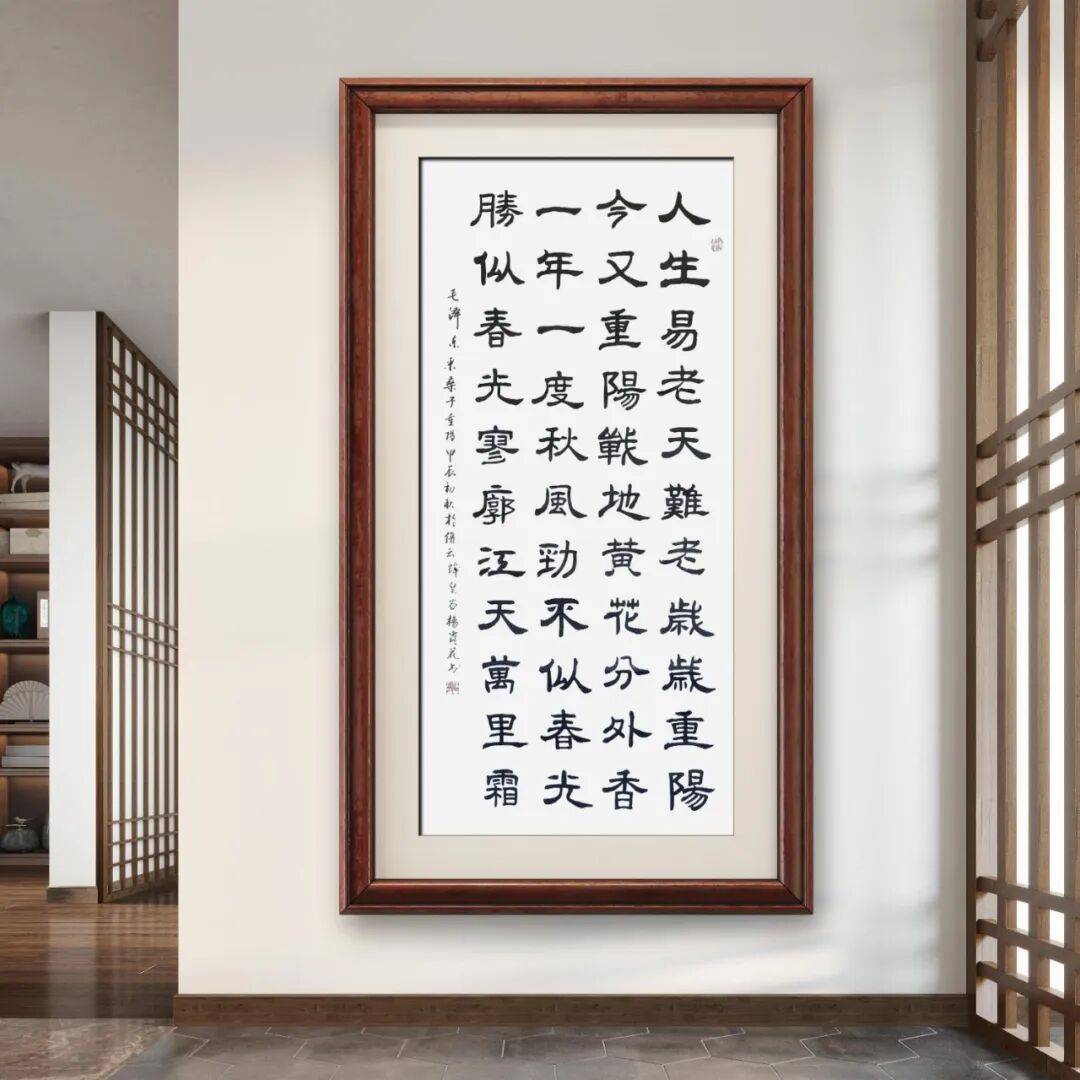 人生易老天難老歲歲重陽
今又重陽戰地黃花分外香
一年一度秋風勁不似春光
勝似春光寥廓江天萬里霜
毛澤東采桑子重陽甲辰初秋於縉云